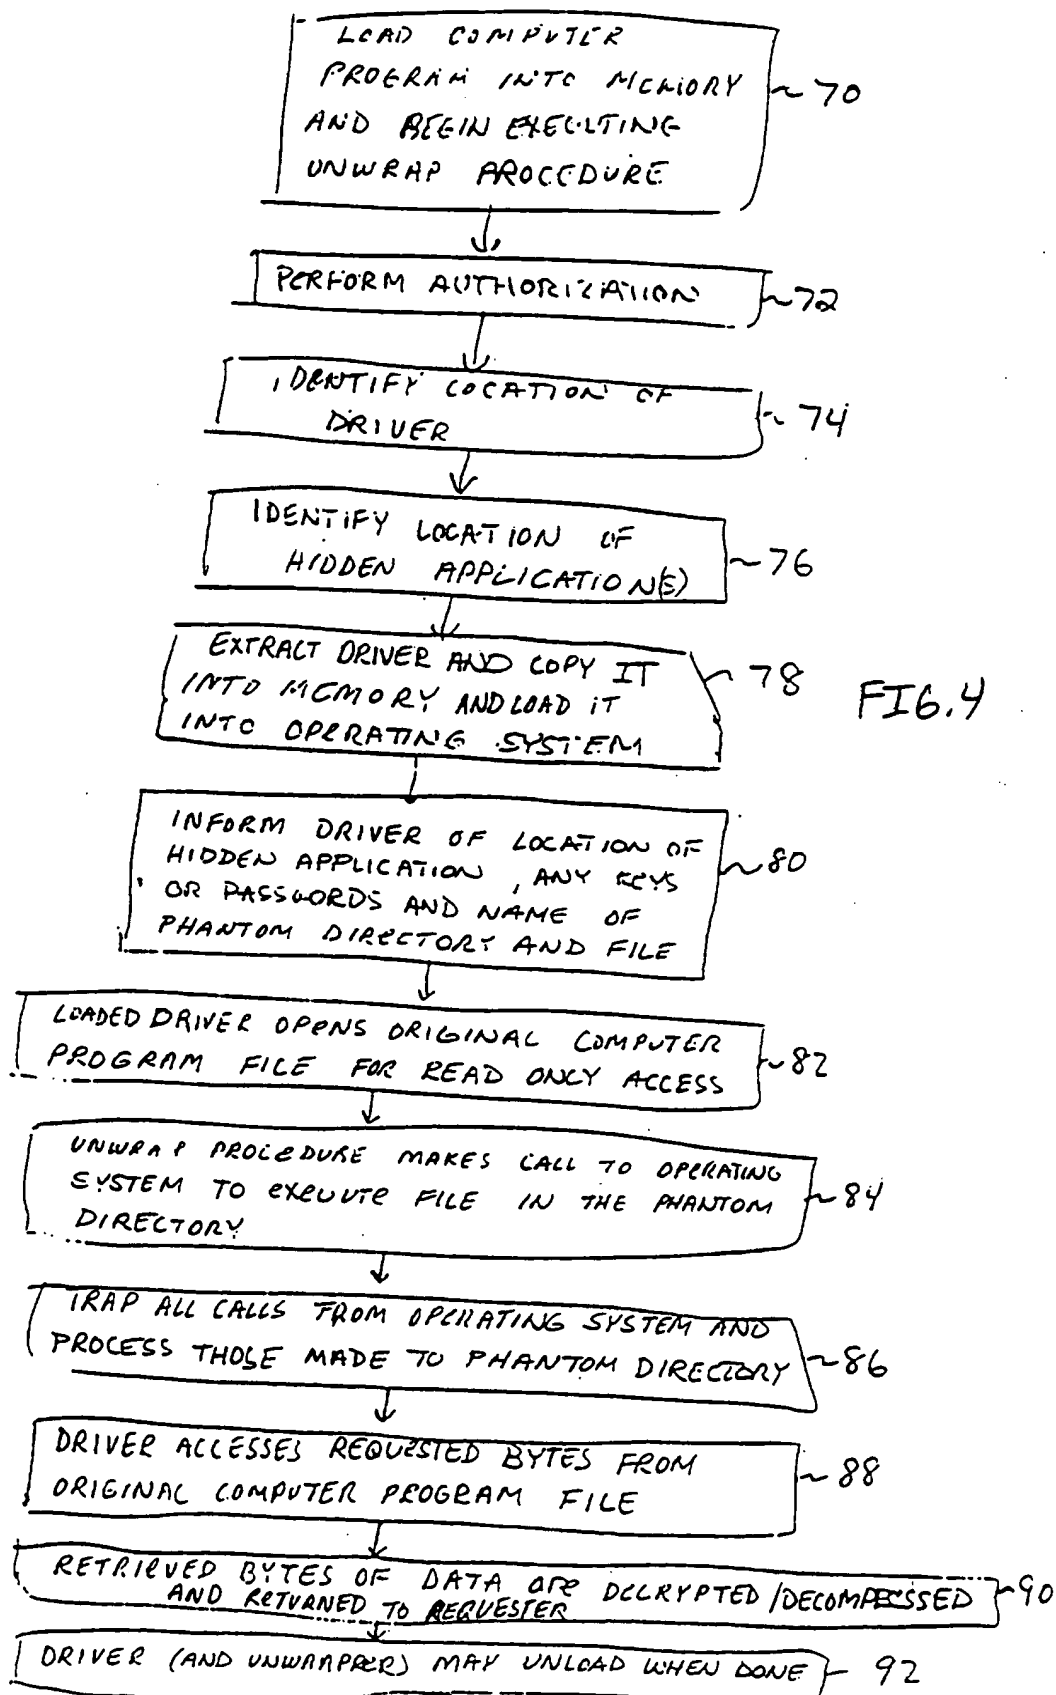 LOAD COMPUTER
PROGRAM INTO MEMORY ~ 70
AND BEGIN EXECUTING
UNWRAP PROCEDURE
PERFORM AUTHORIZATION ~ 72
IDENTIFY LOCATION OF
DRIVER ~ 74
IDENTIFY LOCATION OF
HIDDEN APPLICATION(S) ~ 76
EXTRACT DRIVER AND COPY IT
INTO MEMORY AND LOAD IT ~ 78
INTO OPERATING SYSTEM
FIG.4
INFORM DRIVER OF LOCATION OF
HIDDEN APPLICATION, ANY KEYS ~ 80
OR PASSWORDS AND NAME OF
PHANTOM DIRECTORY AND FILE
LOADED DRIVER OPENS ORIGINAL COMPUTER
PROGRAM FILE FOR READ ONLY ACCESS ~ 82
UNWRAP PROCEDURE MAKES CALL TO OPERATING
SYSTEM TO EXECUTE FILE IN THE PHANTOM ~ 84
DIRECTORY
TRAP ALL CALLS FROM OPERATING SYSTEM AND
PROCESS THOSE MADE TO PHANTOM DIRECTORY ~ 86
DRIVER ACCESSES REQUESTED BYTES FROM
ORIGINAL COMPUTER PROGRAM FILE ~ 88
RETRIEVED BYTES OF DATA ARE DECRYPTED/DECOMPRESSED ~ 90
AND RETURNED TO REQUESTER
DRIVER (AND UNWRAPPER) MAY UNLOAD WHEN DONE - 92